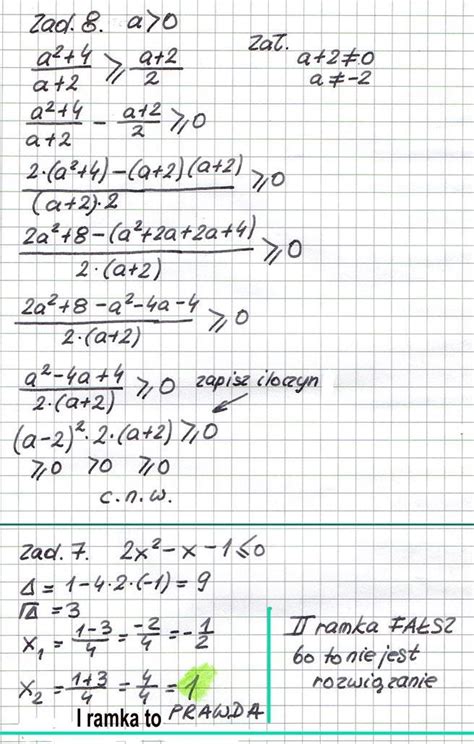 zad. 8. a>0
zał.
a+2≠0
a≠-2
(a²+4)/(a+2) ⩾ (a+2)/2
(a²+4)/(a+2) - (a+2)/2 ⩾0
(2·(a²+4)-(a+2)(a+2))/((a+2)·2) ⩾0
(2a²+8-(a²+2a+2a+4))/(2·(a+2)) ⩾0
(2a²+8-a²-4a-4)/(2·(a+2)) ⩾0
(a²-4a+4)/(2·(a+2)) ⩾0 zapisz iloczyn
(a-2)²·2·(a+2)⩾0
⩾0 >0 ⩾0
c.n.w.
zad. 7. 2x²-x-1⩽0
Δ=1-4·2·(-1)=9
√Δ=3
x₁=(1-3)/4=-2/4=-1/2
x₂=(1+3)/4=4/4=1
I ramka to PRAWDA
II ramka FAŁSZ
bo to nie jest
rozwiązanie